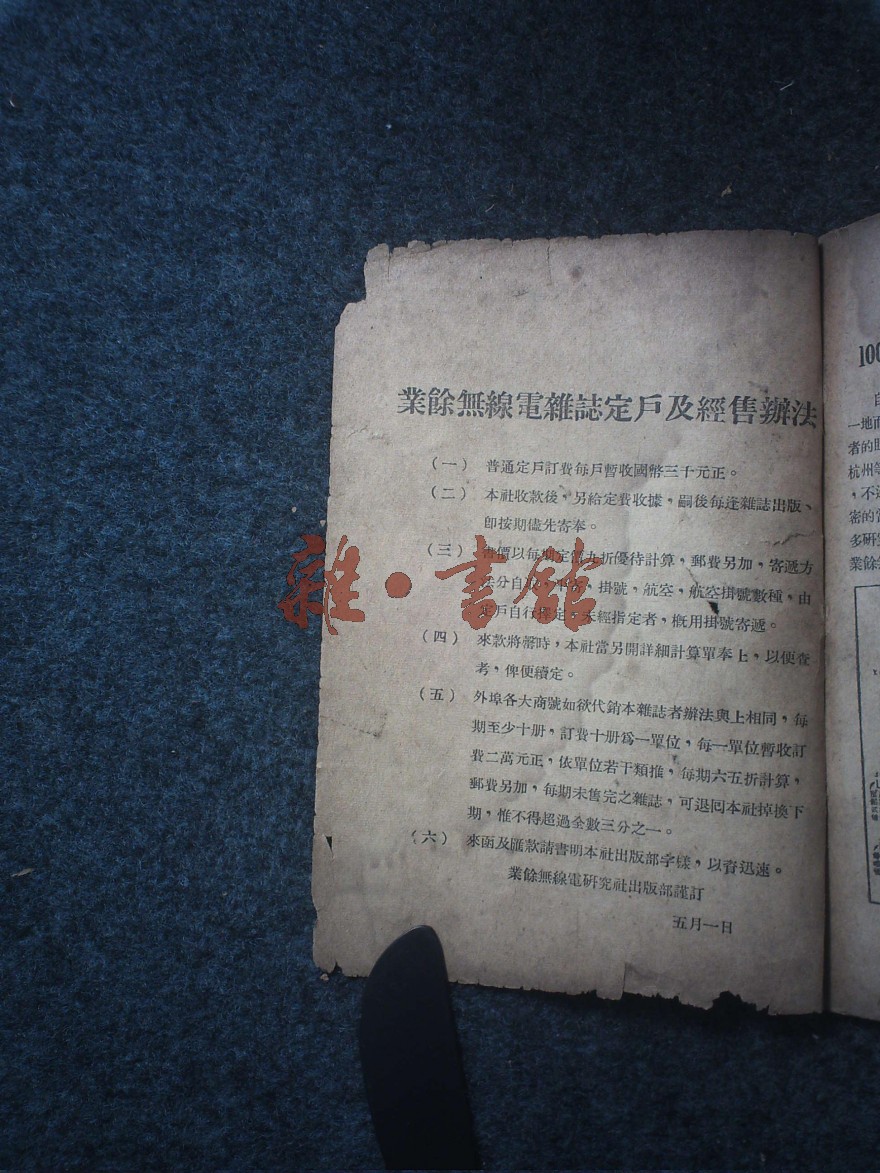 業餘無線電雜誌定戶及經售辦法
（一） 普通定戶訂費每戶暫收國幣三千元正。
（二） 本社收款後，另給定費收據，嗣後每逢雜誌出版、
即按期儘先寄奉。
（三） 書價以每期定價九折優待計算，郵費另加，寄遞方
法分自取，平寄，掛號，航空，航空掛號數種，由
定戶自行擇定，未經指定者，概用掛號寄遞。
（四） 來款將罄時，本社當另開詳細計算單奉上，以便查
考，俾便續定。
（五） 外埠各大商號如欲代銷本雜誌者辦法與上相同，每
期至少十册，訂費十册爲一單位，每一單位暫收訂
費二萬元正，依單位若干類推，每期六五折計算，
郵費另加，每期未售完之雜誌，可退回本社掉換下
期，惟不得超過全數三分之一。
（六） 來函及匯款請書明本社出版部字樣，以資迅速。
業餘無線電研究社出版部謹訂
五月一日
雜·書館
100
一地面
者的
杭州等
，不
密的
多研
業餘